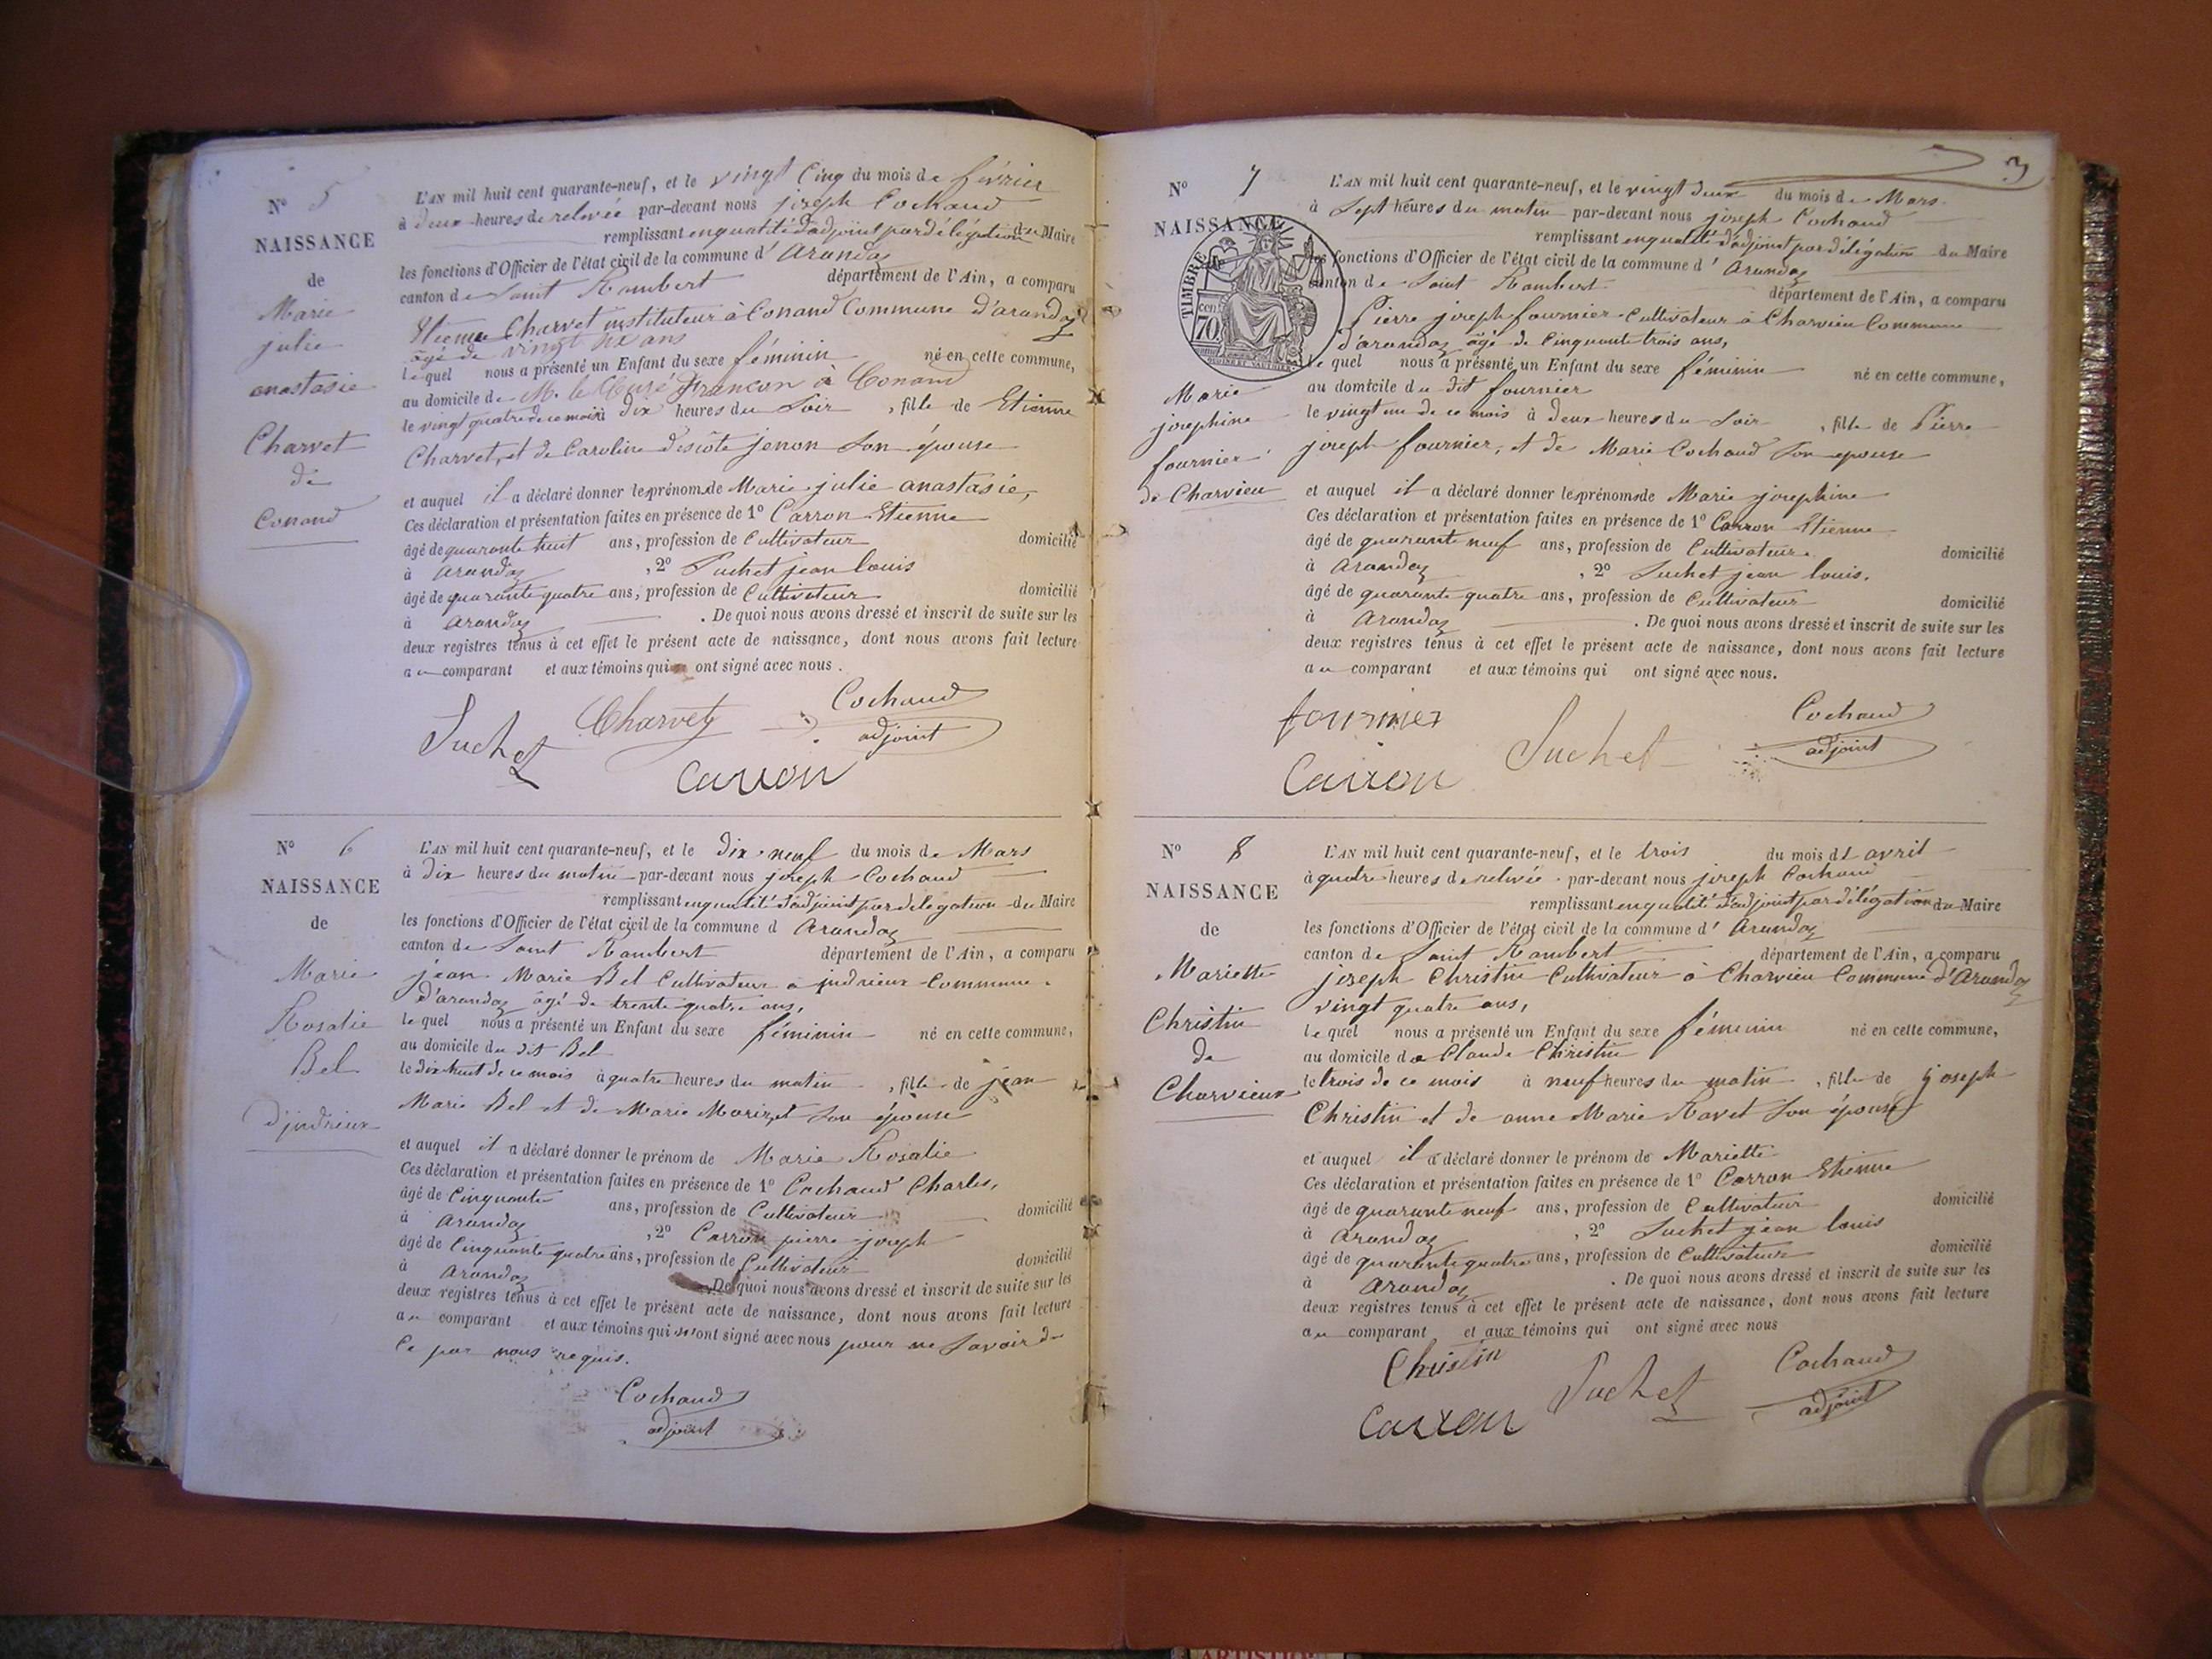 N° 5
NAISSANCE
de
Marie
julie
anastasie
Charvet
de
Conand
L'AN mil huit cent quarante-neuf, et le vingt Cinq du mois de février
à deux heures de relevée par-devant nous joseph Cochaud
remplissant en qualité d'adjoint par délégation du Maire
les fonctions d'Officier de l'état civil de la commune d' Arandaz
canton de Saint Rambert département de l'Ain, a comparu
Etienne Charvet instituteur à Conand Commune d'arandaz
âgé de vingt six ans
lequel nous a présenté un Enfant du sexe féminin né en cette commune,
au domicile de M. le Curé françon à Conand
le vingt quatre de ce mois à dix heures du Soir , fille de Etienne
Charvet, et de Caroline descôte jenon Son épouse
et auquel il a déclaré donner les prénoms de Marie julie anastasie,
Ces déclaration et présentation faites en présence de 1° Carron Etienne
âgé de quarante huit ans, profession de Cultivateur domicilié
à arandaz , 2° Suchet jean louis
âgé de quarante quatre ans, profession de Cultivateur domicilié
à arandaz . De quoi nous avons dressé et inscrit de suite sur les
deux registres tenus à cet effet le présent acte de naissance, dont nous avons fait lecture
au comparant et aux témoins qui ont signé avec nous .
Suchet Charvet Cochaud
adjoint
Carron
N° 6
NAISSANCE
de
Marie
Rosalie
Bel
d'jndrieux
L'AN mil huit cent quarante-neuf, et le dix-neuf du mois de Mars
à dix heures du matin par-devant nous joseph Cochaud
remplissant en qualité d'adjoint par délégation du Maire
les fonctions d'Officier de l'état civil de la commune d Arandaz
canton de Saint Rambert département de l'Ain, a comparu
jean Marie Bel Cultivateur à jndrieux Commune
d'arandaz âgé de trente quatre ans,
lequel nous a présenté un Enfant du sexe féminin né en cette commune,
au domicile du dit Bel
le dix huit de ce mois à quatre heures du matin , fille de jean
Marie Bel et de Marie Son épouse
et auquel il a déclaré donner le prénom de Marie Rosalie
Ces déclaration et présentation faites en présence de 1° Cochaud Charles,
âgé de Cinquante ans, profession de Cultivateur domicilié
à arandaz , 2° Carron pierre joseph
âgé de Cinquante quatre ans, profession de Cultivateur domicilié
à arandaz . De quoi nous avons dressé et inscrit de suite sur les
deux registres tenus à cet effet le présent acte de naissance, dont nous avons fait lecture
au comparant et aux témoins qui n'ont signé avec nous pour ne Savoir de
Ce par nous requis.
Cochaud
adjoint
3
N° 7
NAISSANCE
TIMBRE
70
Marie
josephine
fournier
de Charvieu
L'AN mil huit cent quarante-neuf, et le vingt deux du mois de Mars
à Sept heures du matin par-devant nous joseph Cochaud
remplissant en qualité d'adjoint par délégation du Maire
les fonctions d'Officier de l'état civil de la commune d' Arandaz
canton de Saint Rambert département de l'Ain, a comparu
Pierre joseph fournier Cultivateur à Charvieu Commune
d'arandaz âgé de Cinquante trois ans,
lequel nous a présenté un Enfant du sexe féminin né en cette commune,
au domicile du dit fournier
le vingt un de ce mois à deux heures du Soir , fille de Pierre
joseph fournier, et de Marie Cochaud Son epouse
et auquel il a déclaré donner les prénoms de Marie josephine
Ces déclaration et présentation faites en présence de 1° Carron Etienne
âgé de quarante neuf ans, profession de Cultivateur domicilié
à Arandaz , 2° Suchet jean louis.
âgé de quarante quatre ans, profession de Cultivateur domicilié
à Arandaz . De quoi nous avons dressé et inscrit de suite sur les
deux registres tenus à cet effet le présent acte de naissance, dont nous avons fait lecture
au comparant et aux témoins qui ont signé avec nous.
fournier Suchet Cochaud
adjoint
Carron
N° 8
NAISSANCE
de
Mariette
Christin
de
Charvieux
L'AN mil huit cent quarante-neuf, et le trois du mois de avril
à quatre heures de relevée par-devant nous joseph Cochaud
remplissant en qualité d'adjoint par délégation du Maire
les fonctions d'Officier de l'état civil de la commune d' Arandaz
canton de Saint Rambert département de l'Ain, a comparu
joseph Christin Cultivateur à Charvieu Commune d'Arandaz
vingt quatre ans,
lequel nous a présenté un Enfant du sexe féminin né en cette commune,
au domicile de Claude Christin
le trois de ce mois à neuf heures du matin , fille de joseph
Christin et de anne Marie Ravet Son épouse
et auquel il a déclaré donner le prénom de Mariette
Ces déclaration et présentation faites en présence de 1° Carron Etienne
âgé de quarante neuf ans, profession de Cultivateur domicilié
à Arandaz , 2° Suchet jean louis
âgé de quarante quatre ans, profession de Cultivateur domicilié
à Arandaz . De quoi nous avons dressé et inscrit de suite sur les
deux registres tenus à cet effet le présent acte de naissance, dont nous avons fait lecture
au comparant et aux témoins qui ont signé avec nous
Christin Suchet Cochaud
adjoint
Carron